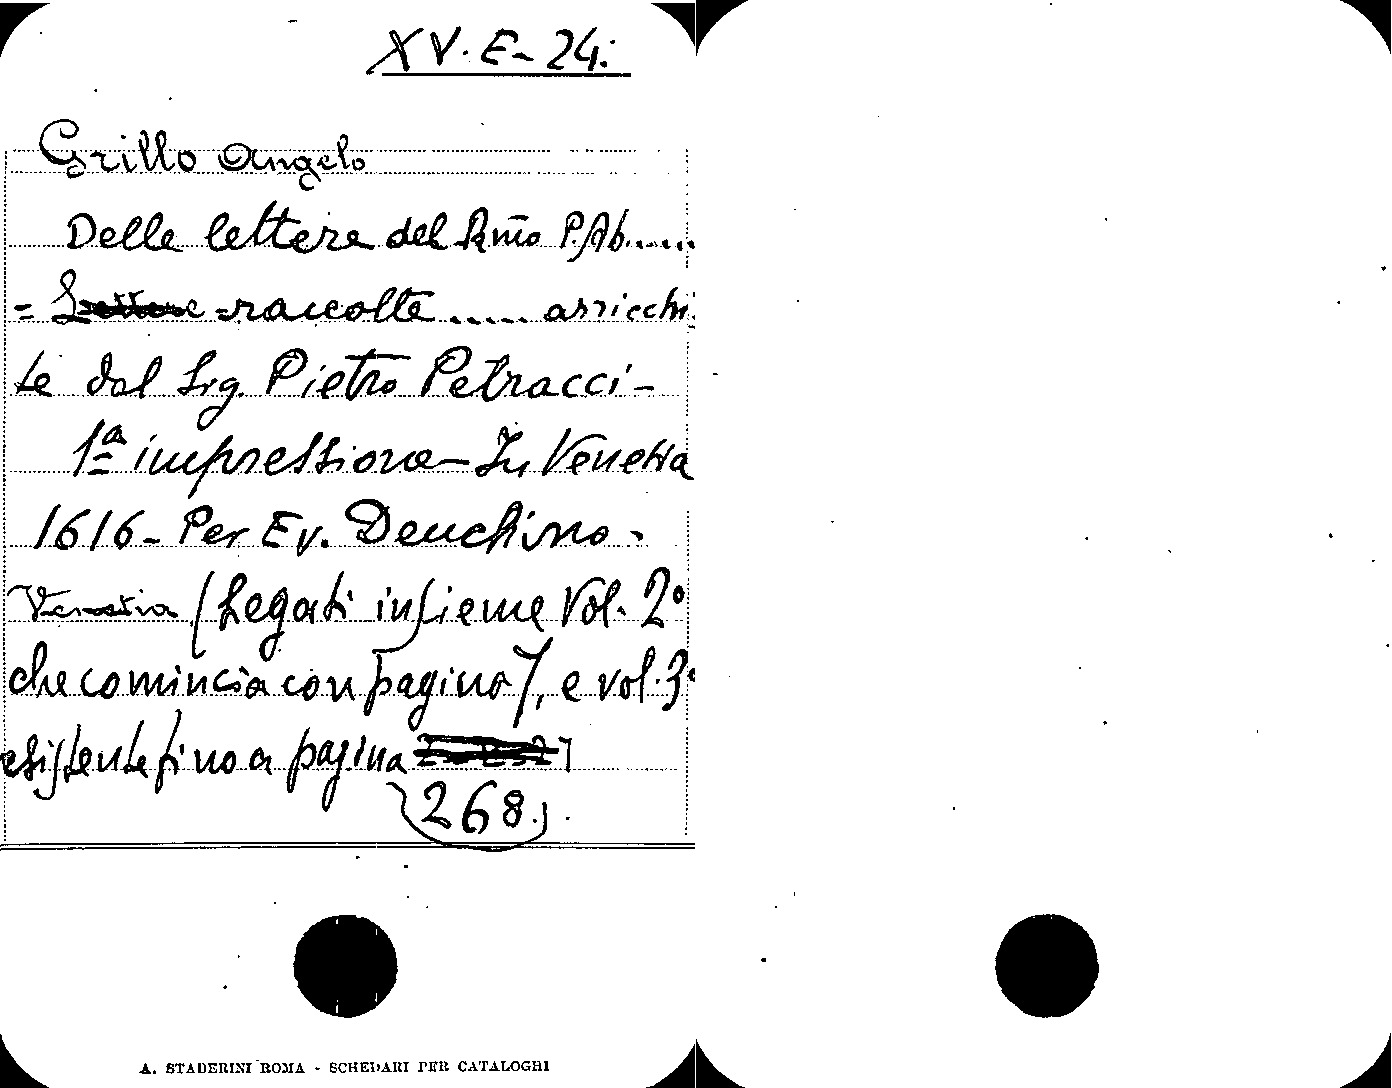 XV. E- 24.
Grillo Angelo
Delle lettere del Rmo P. Ab.....
= raccolte ..... arricchi
te dal Sig. Pietro Petracci -
1ª impressione - In Venetia
1616 - Per Ev. Deuchino -
Venetia (Legati insieme Vol. 2°
che comincia con pagina 7, e vol. 3°
esistente fino a pagina
268.)
A. STADERINI ROMA - SCHEDARI PER CATALOGHI